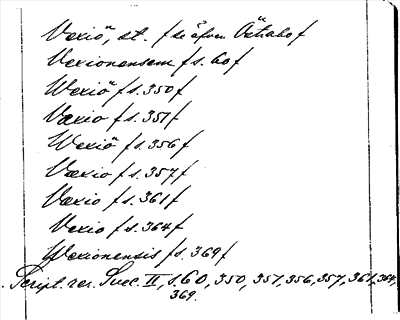 Vexiö, st. /se äfven Östrabo/
Vexionensem /s. 60/
Wexiö /s. 350/
Vexio /s. 351/
Wexiö /s. 356/
Vexio /s. 357/
Vexio /s. 361/
Vexio /s. 364/
Wexionensis /s. 369/
Script. rer. Suec. II, s. 60, 350, 351, 356, 357, 361, 364,
369.